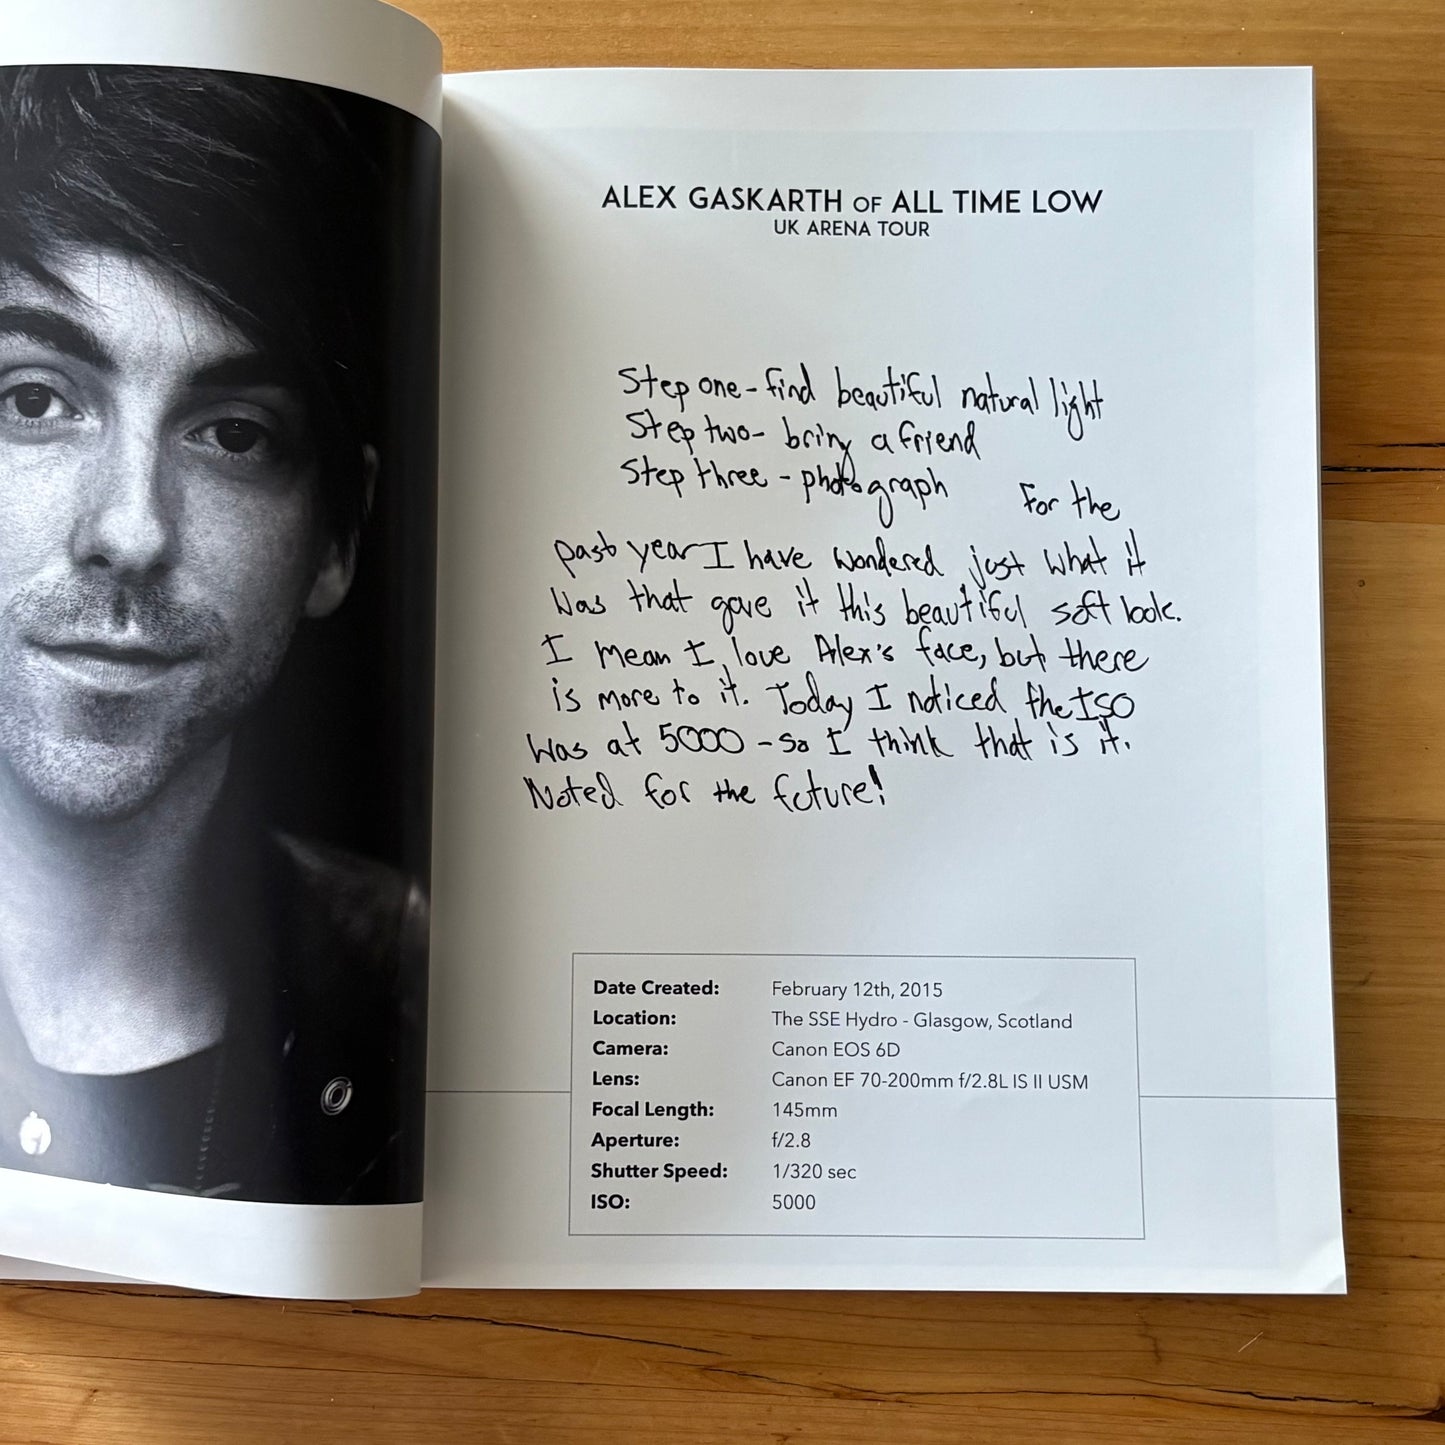 ALEX GASKARTH OF ALL TIME LOW
UK ARENA TOUR
Step one - find beautiful natural light
Step two - bring a friend
Step three - photograph
For the
past year I have wondered just what it
was that gave it this beautiful soft look.
I mean I love Alex's face, but there
is more to it. Today I noticed the ISO
was at 5000 - so I think that is it.
Noted for the future!
Date Created: February 12th, 2015
Location: The SSE Hydro - Glasgow, Scotland
Camera: Canon EOS 6D
Lens: Canon EF 70-200mm f/2.8L IS II USM
Focal Length: 145mm
Aperture: f/2.8
Shutter Speed: 1/320 sec
ISO: 5000